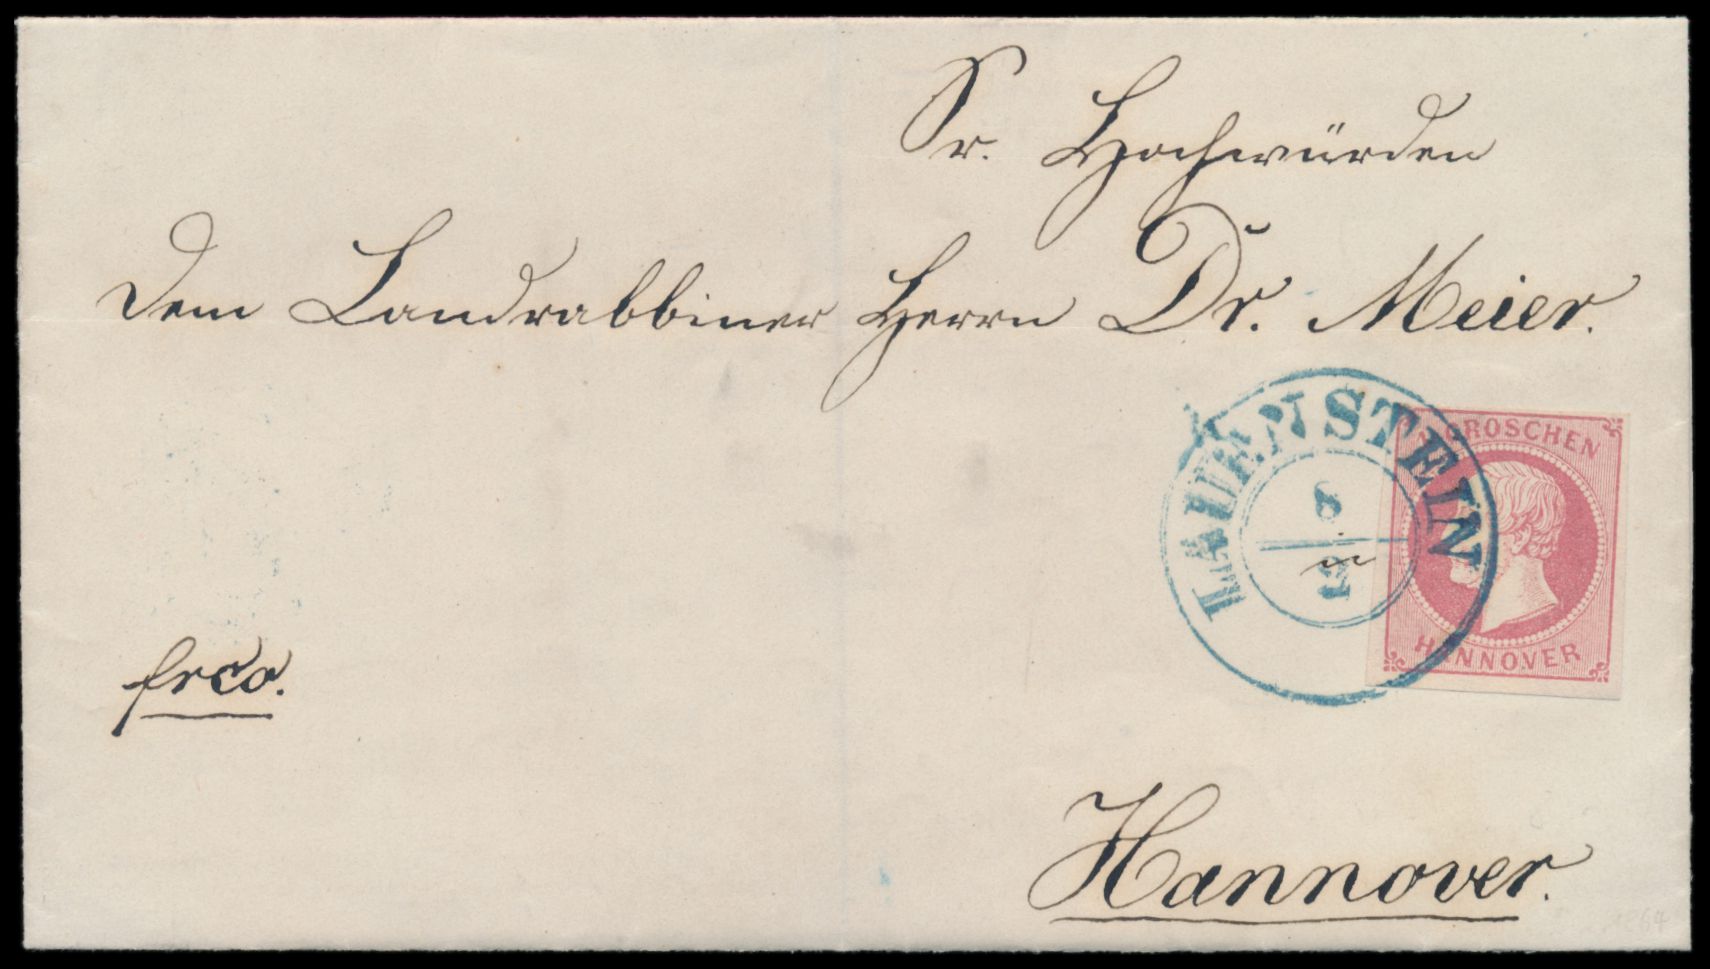 Sr. Hochwürden
dem Landrabbiner Herrn Dr. Meier.
LAUENSTEIN
8
5
in
GROSCHEN
HANNOVER
frco.
Hannover.